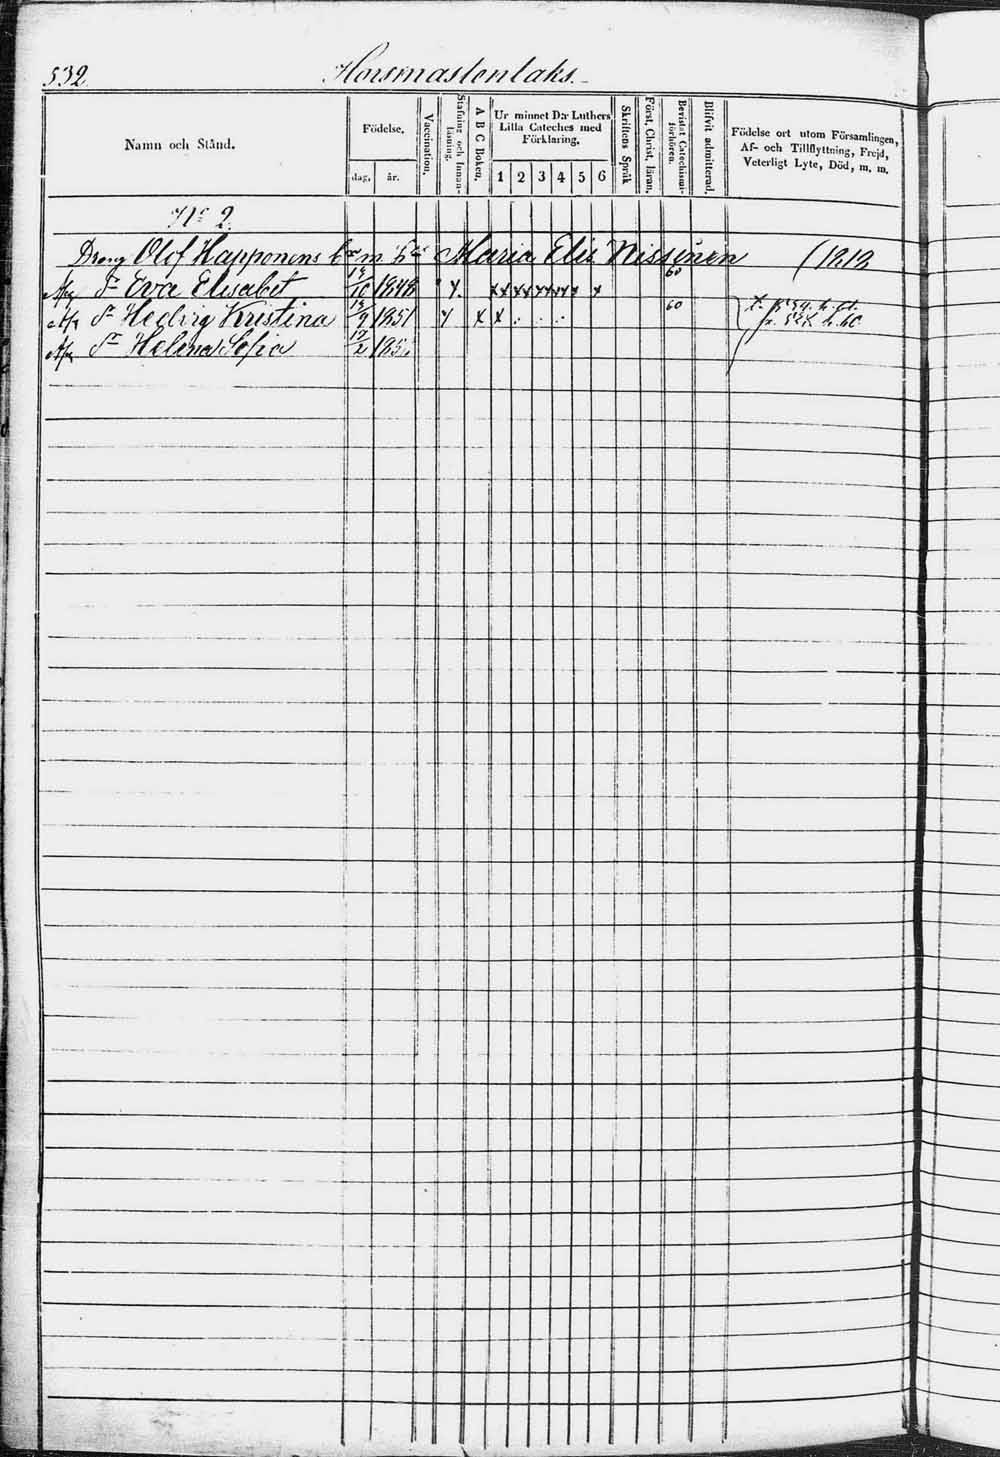 532.
Horsmastenlaks.
Namn och Stånd.
Födelse.
dag.
år.
Vaccination.
Stafning och Innan-
läsning.
A B C Boken.
Ur minnet D:r Luthers
Lilla Cateches med
Förklaring.
1 2 3 4 5 6
Skriftens Språk
Först. Christ. läran.
Bevistat Catechismi-
förhören.
Blifvit admitterad.
Födelse ort utom Församlingen,
Af- och Tillflyttning, Frejd,
Veterligt Lyte, Död, m. m.
No 2.
Dreng Olof Kapponens m. Maria Elis Nissinen (1213
Eva Elisabet 10 1848 x 60
Hedvig Kristina 9 1851 60
Helena Sofia 12/2